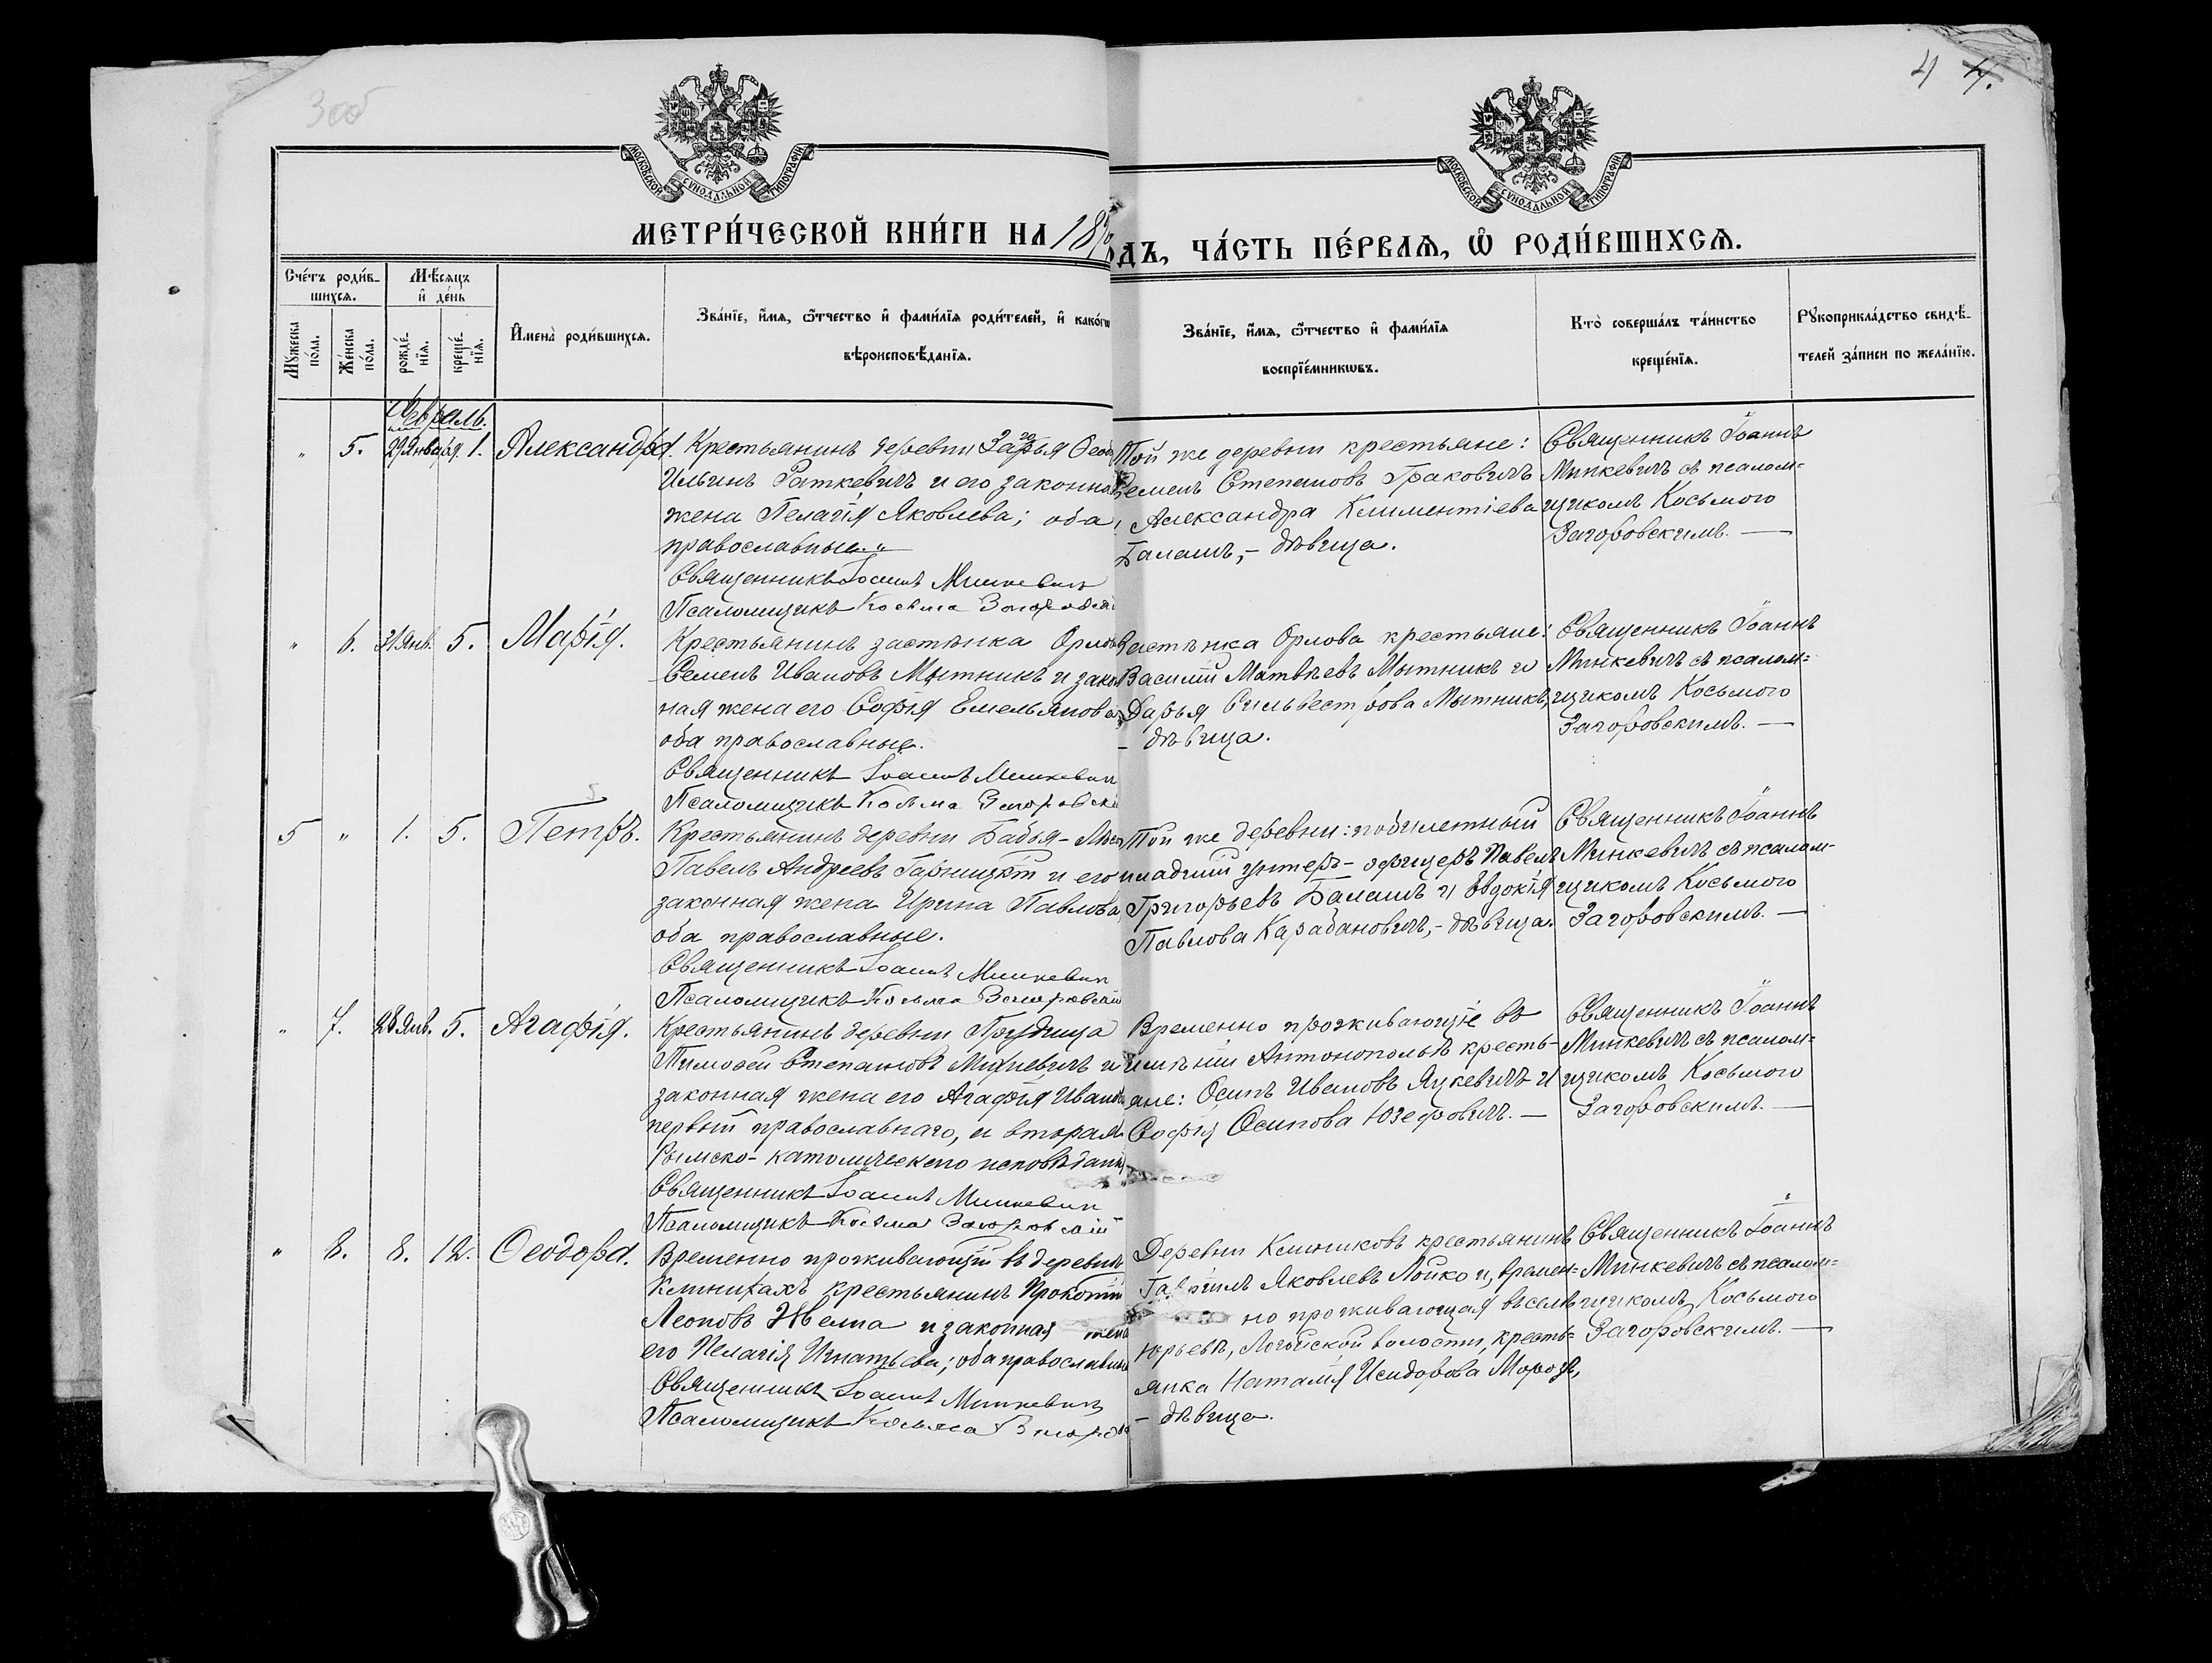 3 об
4 4.
МОСКОВСКОЙ СѴНОДАЛЬНОЙ ТИПОГРАФІИ
МОСКОВСКОЙ СѴНОДАЛЬНОЙ ТИПОГРАФІИ
МЕТРИ́ЧЕСКОЙ КНИ́ГИ НА 189
ДЪ, ЧА́СТЬ ПЕ́РВАѦ, Ѿ РОДИ́ВШИХСѦ.
Сче́тъ роди́в-
шихсѧ.
Мꙋ́жеска по́ла.
Же́нска по́ла.
Мѣ́сѧцъ и҆ де́нь
рожде́-нїѧ.
креще́-нїѧ.
И҆мена̀ роди́вшихсѧ.
Зва́нїе, и҆́мѧ, ѻ҆́тчество и҆ фами́лїѧ роди́телей, и҆ како́гѡ
вѣроисповѣ́данїѧ.
Зва́нїе, и҆́мѧ, ѻ҆́тчество и҆ фами́лїѧ
воспрїе́мникѡвъ.
Кто̀ соверша́лъ та́инство
креще́нїѧ.
Рꙋкоприкла́дство свидѣ́-
телей за́писи по жела́нїю.
Февраль.
" 5. 29 Января. 1. Александра.
Крестьянинъ деревни
Ильинъ Раткевичъ и его законная
жена Пелагія Яковлева; оба
православные."
Священникъ Іоаннъ Минкевич
Псаломщикъ Косьма Загоровскі
Той же деревни крестьяне:
Семенъ Степановъ Граковичъ
Александра Климентіева
Балашъ,- дѣвица.
Священникъ Іоаннъ
Минкевичъ съ псалом=
щикомъ Косьмою
Загоровскимъ. —
" 6. 31 Янв. 5. Марія.
Крестьянинъ застѣнка Орлова
Семенъ Ивановъ Мытникъ и закон
ная жена его Софія Емельянова,
оба православные.
Священникъ Іоаннъ Минкевич
Псаломщикъ Косьма Загоровскі
Застѣнка Орлова крестьяне:
Василій Матвѣевъ Мытникъ и
Дарья Сильвестрова Мытникъ,
- дѣвица.
Священникъ Іоаннъ
Минкевичъ съ псалом=
щикомъ Косьмою
Загоровскимъ. —
5 " 1. 5. Петръ.
Крестьянинъ деревни Бабья-
Павелъ Андреевъ Гарницкій и его
законная жена Ирина Павлова,
оба православные.
Священникъ Іоаннъ Минкевич
Псаломщикъ Косьма Загоровскій
Той же деревни: побилетный
младшій унтеръ-офицеръ Павелъ
Григорьевъ Балашъ и Евдокія
Павлова Карабановичъ,- дѣвица.
Священникъ Іоаннъ
Минкевичъ съ псалом-
щикомъ Косьмою
Загоровскимъ. —
" 7. 28 Янв. 5. Агафія.
Крестьянинъ деревни Прудища
Тимоѳей Степановъ Михневичъ и
законная жена его Агафія Иванова
первый православнаго, и вторая
Римско-католическаго исповѣданія
Священникъ Іоаннъ Минкевич
Псаломщикъ Косьма Загоровскій
Временно проживающіе въ
имѣніи Антонополь, кресть-
яне: Осипъ Ивановъ Яцкевичъ и
Софія Осипова Юзефовичъ. —
Священникъ Іоаннъ
Минкевичъ съ псалом=
щикомъ Косьмою
Загоровскимъ. —
" 8. 8. 12. Ѳеодора.
Временно проживающій въ деревнѣ
Клинникахъ крестьянинъ Прокопій
Леоновъ и законная жена
его Пелагія Игнатьева; оба православные
Священникъ Іоаннъ Минкевичъ
Псаломщикъ Косьма Загоровс
Деревни Клинниковъ крестьянинъ
Гавріилъ Яковлевъ Лойко и, времен=
но проживающая въ селѣ
Юрьевѣ, Логойской волости, кресть=
янка Наталія Исидорова Морозъ,
- дѣвица.
Священникъ Іоаннъ
Минкевичъ съ псалом=
щикомъ Косьмою
Загоровскимъ. —